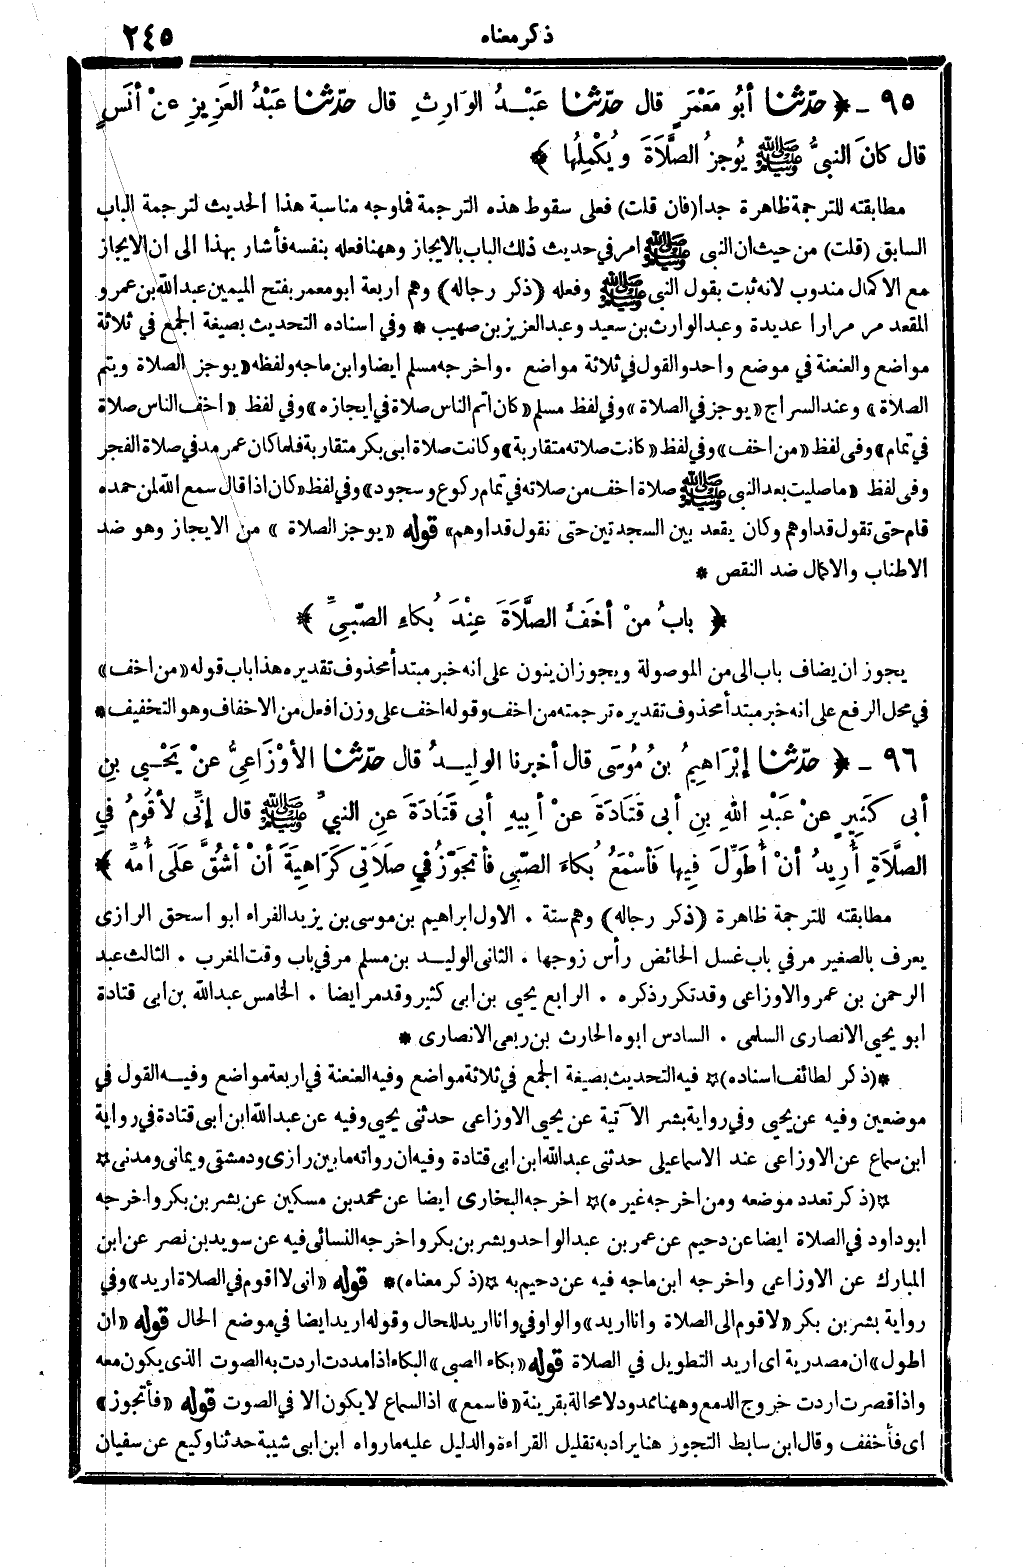 ذكر معناه
٢٤٥
٩٥ ـ ﴿ حدّثنا أبُو مَعْمَرٍ قال حدّثنا عَبْدُ الوَارِثِ قال حدّثنا عَبْدُ العَزِيزِ عنْ أنَسٍ
قال كانَ النبيُّ ﷺ يُوجزُ الصَّلَاَةَ ويُكْمِلُها ﴾
مطابقته للترجمة ظاهرة جدا (فان قلت) فعلى سقوط هذه الترجمة فماوجه مناسبة هذا الحديث لترجمة الباب
السابق (قلت) من حيث ان النبى ﷺ امر فى حديث ذلك الباب بالايجاز وههنا فعله بنفسه فأشار بهذا الى ان الايجاز
مع الاكمال مندوب لانه ثبت بقول النبى ﷺ وفعله (ذكر رجاله) وهم اربعة ابو معمر بفتح الميمين عبد الله بن عمرو
المقعد مر مرارا عديدة وعبد الوارث بن سعيد وعبد العزيز بن صهيب * وفي اسناده التحديث بصيغة الجمع في ثلاثة
مواضع والعنعنة في موضع واحد والقول في ثلاثة مواضع . واخرجه مسلم ايضا وابن ماجه ولفظه «يوجز الصلاة ويتم
الصلاة» وعند السراج «يوجز في الصلاة» وفي لفظ مسلم «كان اتم الناس صلاة في ايجازه» وفي لفظ «اخف الناس صلاة
في تمام» وفى لفظ «من اخف» وفي لفظ «كانت صلاته متقاربة» وكانت صلاة ابى بكر متقاربة فلما كان عمر مد في صلاة الفجر
وفى لفظ «ما صليت بعد النبى ﷺ صلاة اخف من صلاته في تمام ركوع وسجود» وفي لفظ «كان اذا قال سمع الله لمن حمده
قام حتى نقول قد اوهم وكان يقعد بين السجدتين حتى نقول قد اوهم» قوله «يوجز الصلاة» من الايجاز وهو ضد
الاطناب والاكمال ضد النقص *
﴿ بابُ منْ أخَفَّ الصَّلَاَةَ عِنْدَ بُكاءِ الصَّبيِّ ﴾
يجوز ان يضاف باب الى من الموصولة ويجوز ان ينون على انه خبر مبتدأ محذوف تقديره هذا باب قوله «من اخف»
في محل الرفع على انه خبر مبتدأ محذوف تقديره ترجمته من اخف وقوله اخف على وزن افعل من الاخفاف وهو التخفيف *
٩٦ ـ ﴿ حدّثنا إبْرَاهِيمُ بنُ مُوسَى قال أخبرنا الوليدُ قال حدّثنا الأوْزَاعيُّ عنْ يَحْيى بنِ
أبى كَثِيرٍ عنْ عَبْدِ اللهِ بنِ أبى قَتَادَةَ عنْ أبِيهِ أبى قَتَادَةَ عنِ النبيِّ ﷺ قال إنِّى لأَقُومُ فِي
الصَّلَاةِ أُرِيدُ أنْ أُطَوِّلَ فِيها فَأسْمَعُ بُكاءَ الصَّبِى فأتجوّزُ في صَلَاتِى كَرَاهِيَةَ أنْ أشُقَّ عَلَى أُمِّهِ ﴾
مطابقته للترجمة ظاهرة (ذكر رجاله) وهم ستة . الاول ابراهيم بن موسى بن يزيد الفراء ابو اسحق الرازى
يعرف بالصغير مر في باب غسل الحائض رأس زوجها . الثانى الوليد بن مسلم مر في باب وقت المغرب . الثالث عبد
الرحمن بن عمرو الاوزاعى وقد تكرر ذكره . الرابع يحيى بن ابى كثير وقد مر ايضا . الخامس عبد الله بن ابى قتادة
ابو يحيى الانصارى السلمى . السادس ابوه الحارث بن ربعى الانصارى *
*(ذكر لطائف اسناده)* فيه التحديث بصيغة الجمع في ثلاثة مواضع وفيه العنعنة في اربعة مواضع وفيه القول في
موضعين وفيه عن يحيى وفي رواية بشر الآتية عن يحيى الاوزاعى حدثنى يحيى وفيه عن عبد الله ابن ابى قتادة في رواية
ابن سماع عن الاوزاعى عند الاسماعيلى حدثنى عبد الله ابن ابى قتادة وفيه ان رواته ما بين رازى ودمشقى ويمانى ومدنى *
*(ذكر تعدد موضعه ومن اخرجه غيره)* اخرجه البخارى ايضا عن محمد بن مسكين عن بشر بن بكر واخرجه
ابو داود في الصلاة ايضا عن دحيم عن عمر بن عبد الواحد وبشر بن بكر واخرجه النسائى فيه عن سويد بن نصر عن ابن
المبارك عن الاوزاعى واخرجه ابن ماجه فيه عن دحيم به *(ذكر معناه)* قوله «انى لاقوم في الصلاة اريد» وفي
رواية بشر بن بكر «لاقوم الى الصلاة وانا اريد» والواو في وانا اريد للحال وقوله اريد ايضا في موضع الحال قوله «ان
اطول» ان مصدرية اى اريد التطويل في الصلاة قوله «بكاء الصبى» البكاء اذا مددت اردت به الصوت الذى يكون معه
واذا قصرت اردت خروج الدمع وههنا ممدود لا محالة بقرينة «فاسمع» اذ السماع لا يكون الا في الصوت قوله «فأتجوز»
اى فأخفف وقال ابن سابط التجوز هنا يراد به تقليل القراءة والدليل عليه ما رواه ابن ابى شيبة حدثنا وكيع عن سفيان